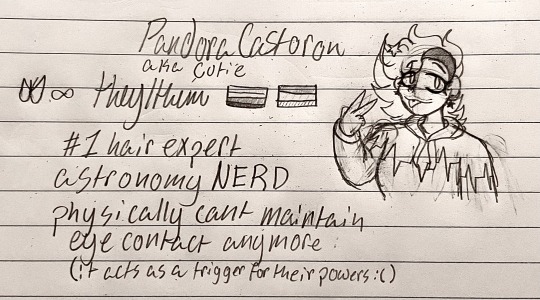 Pandora Castoron
aka Cutie
∞ they/them
#1 hair expert
astronomy NERD
physically cant maintain
eye contact anymore
(it acts as a trigger for their powers :()